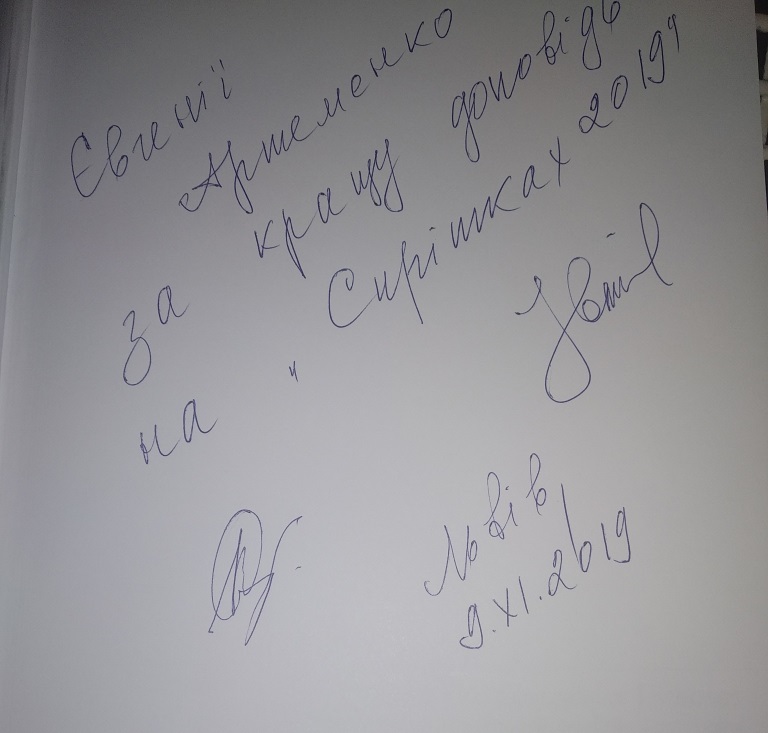 Євгенії
Артеменко
за кращу доповідь
на „ 2019"
Львів,
9.XI.2019